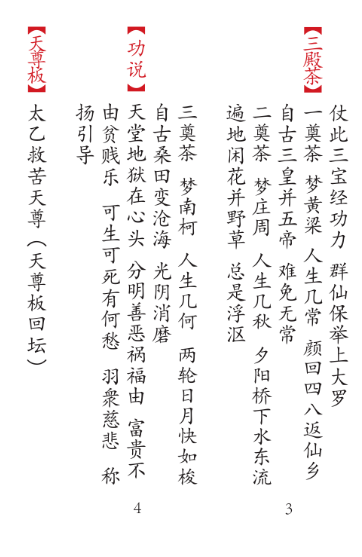 仗此三宝经功力 群仙保举上大罗
【三殿茶】
一奠茶 梦黄梁 人生几常 颜回四八返仙乡
自古三皇并五帝 难免无常
二奠茶 梦庄周 人生几秋 夕阳桥下水东流
遍地闲花并野草 总是浮沤
3
三奠茶 梦南柯 人生几何 两轮日月快如梭
自古桑田变沧海 光阴消磨
【功说】
天堂地狱在心头 分明善恶祸福由 富贵不
由贫贱乐 可生可死有何愁 羽衆慈悲 称
扬引导
【天尊板】
太乙救苦天尊（天尊板回坛）
4